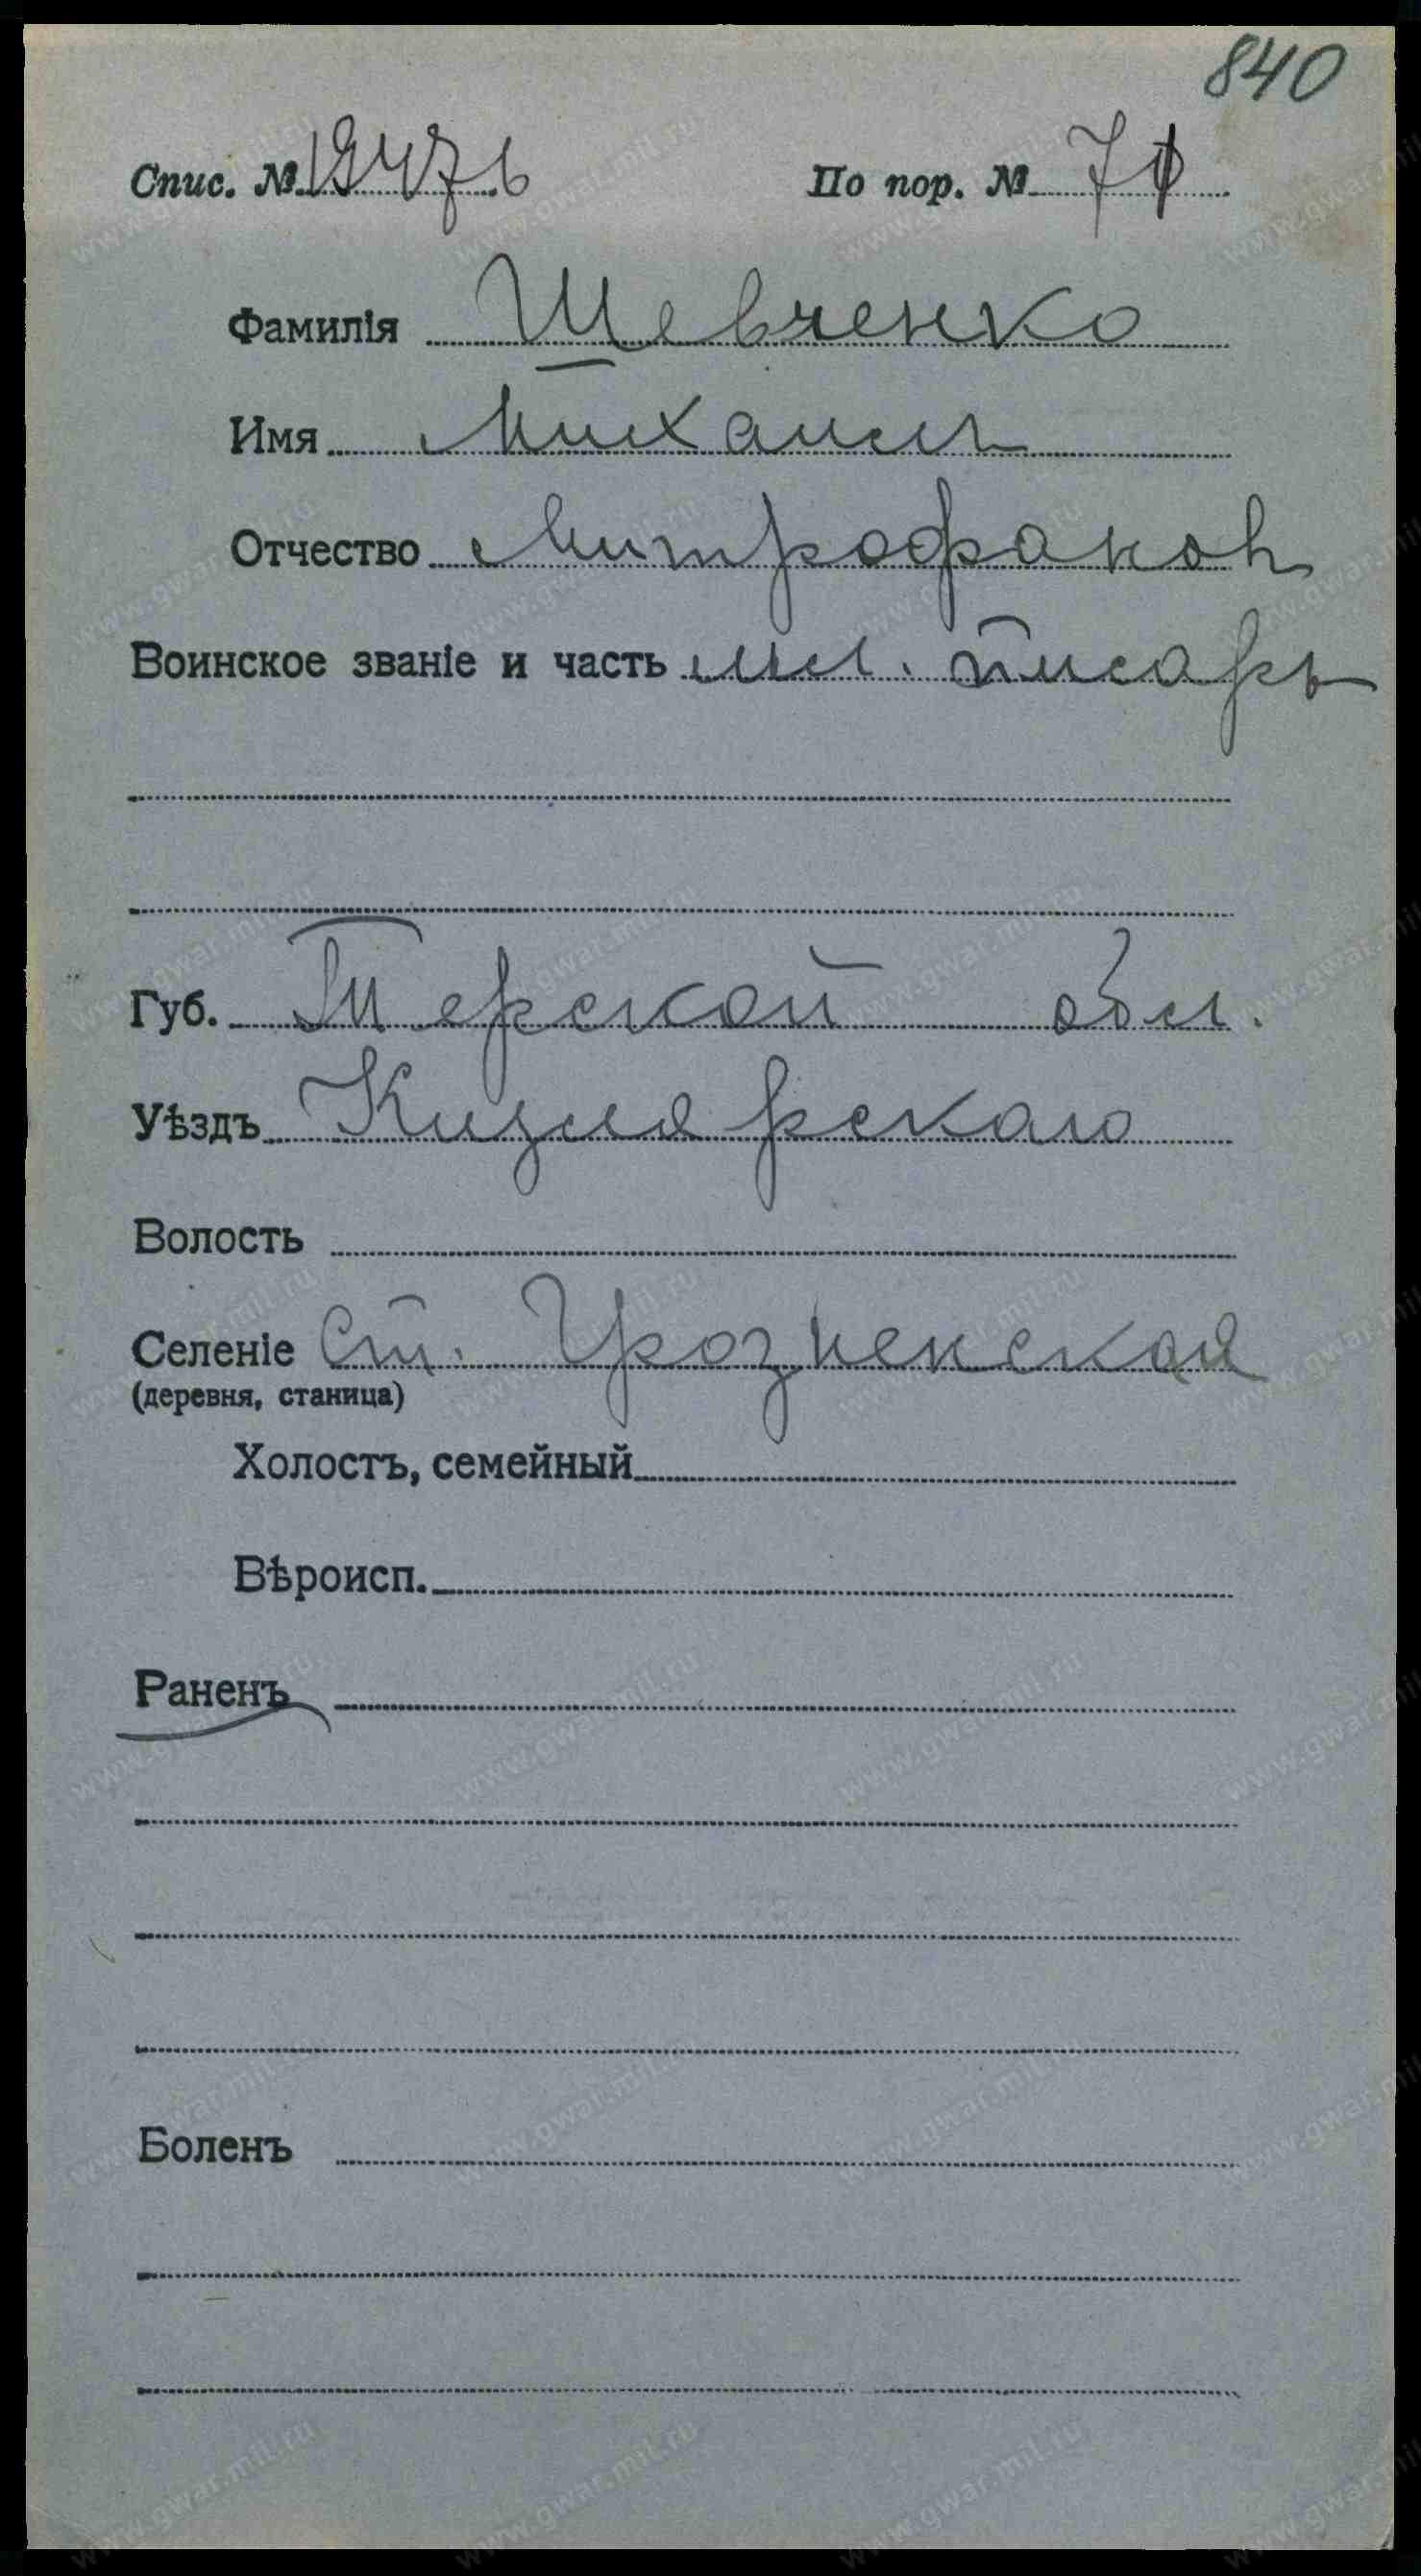 840
Спис. № 19476 По пор. № 71
Фамилія Шевченко
Имя Михаилъ
Отчество Митрофанов
Воинское званіе и часть мл. писарь
Губ. Терской обл.
Уѣздъ Кизлярскаго
Волость
Селеніе ст. Грозненская
(деревня, станица)
Холостъ, семейный
Вѣроисп.
Раненъ
Боленъ